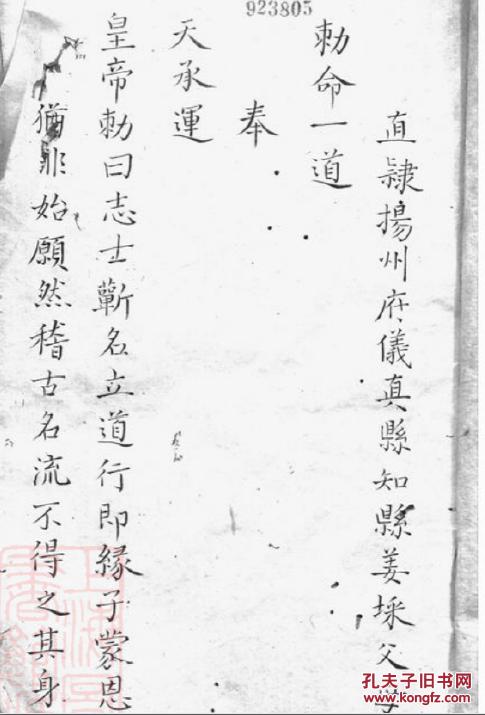 923805
直隷揚州府儀真縣知縣姜埰父母
勅命一道
奉
天承運
皇帝勅曰志士蘄名立道行即緣子蒙恩
猶非始願然稽古名流不得之其身
孔夫子旧书网
www.kongfz.com